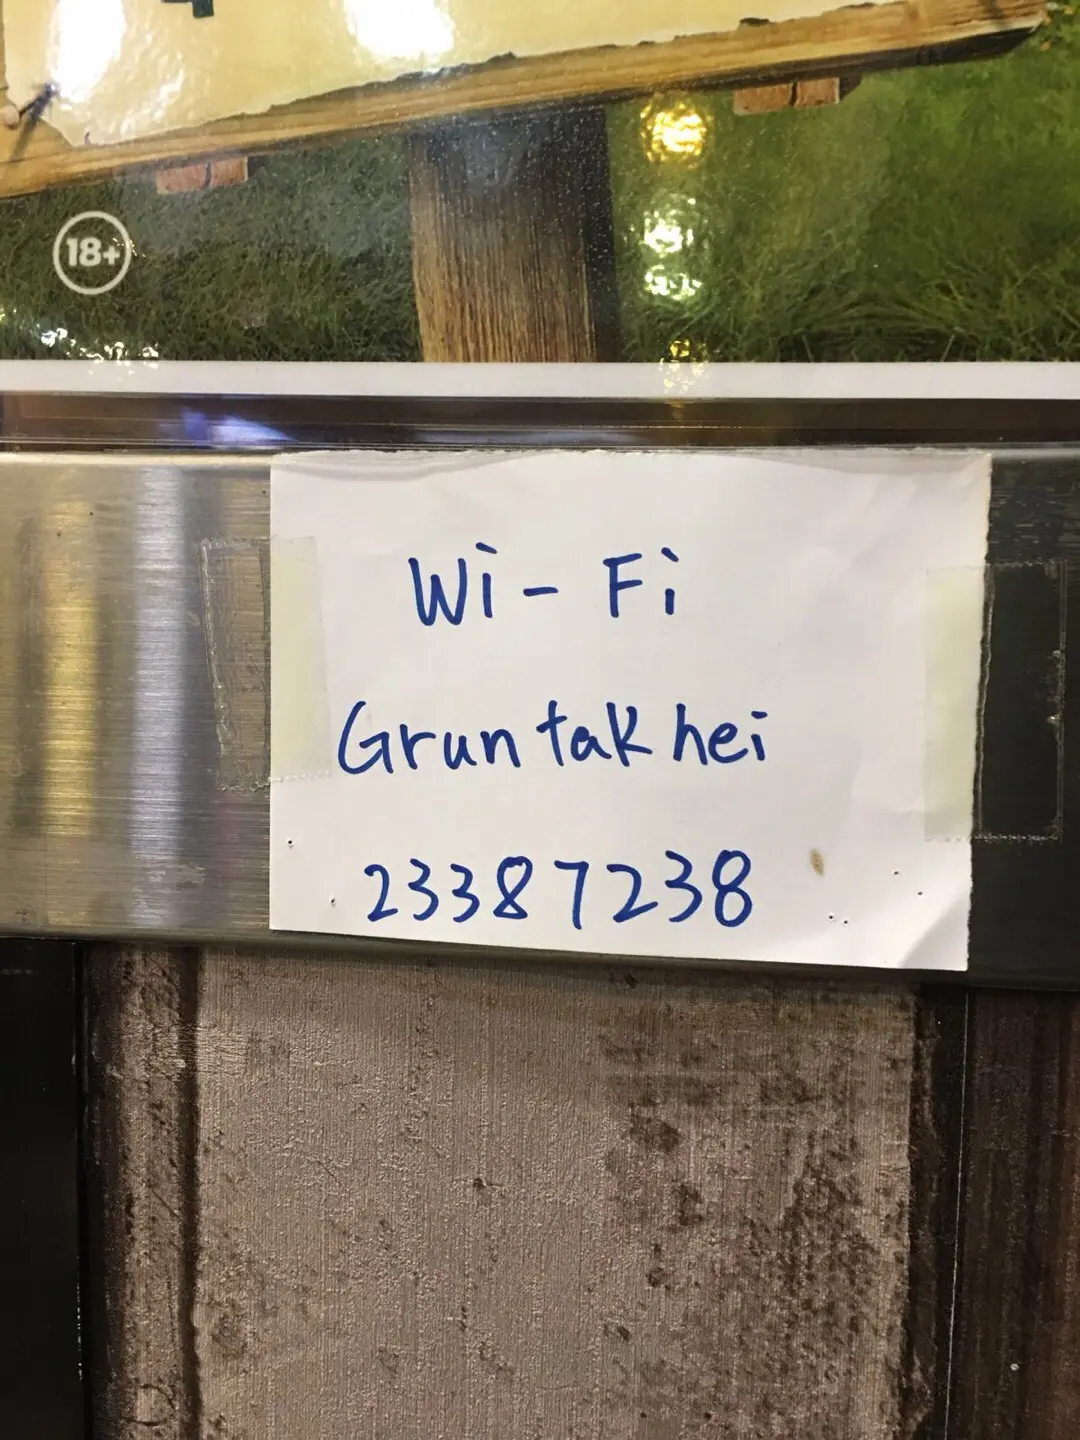 18+
Wi-Fi
Gruntakhei
23387238